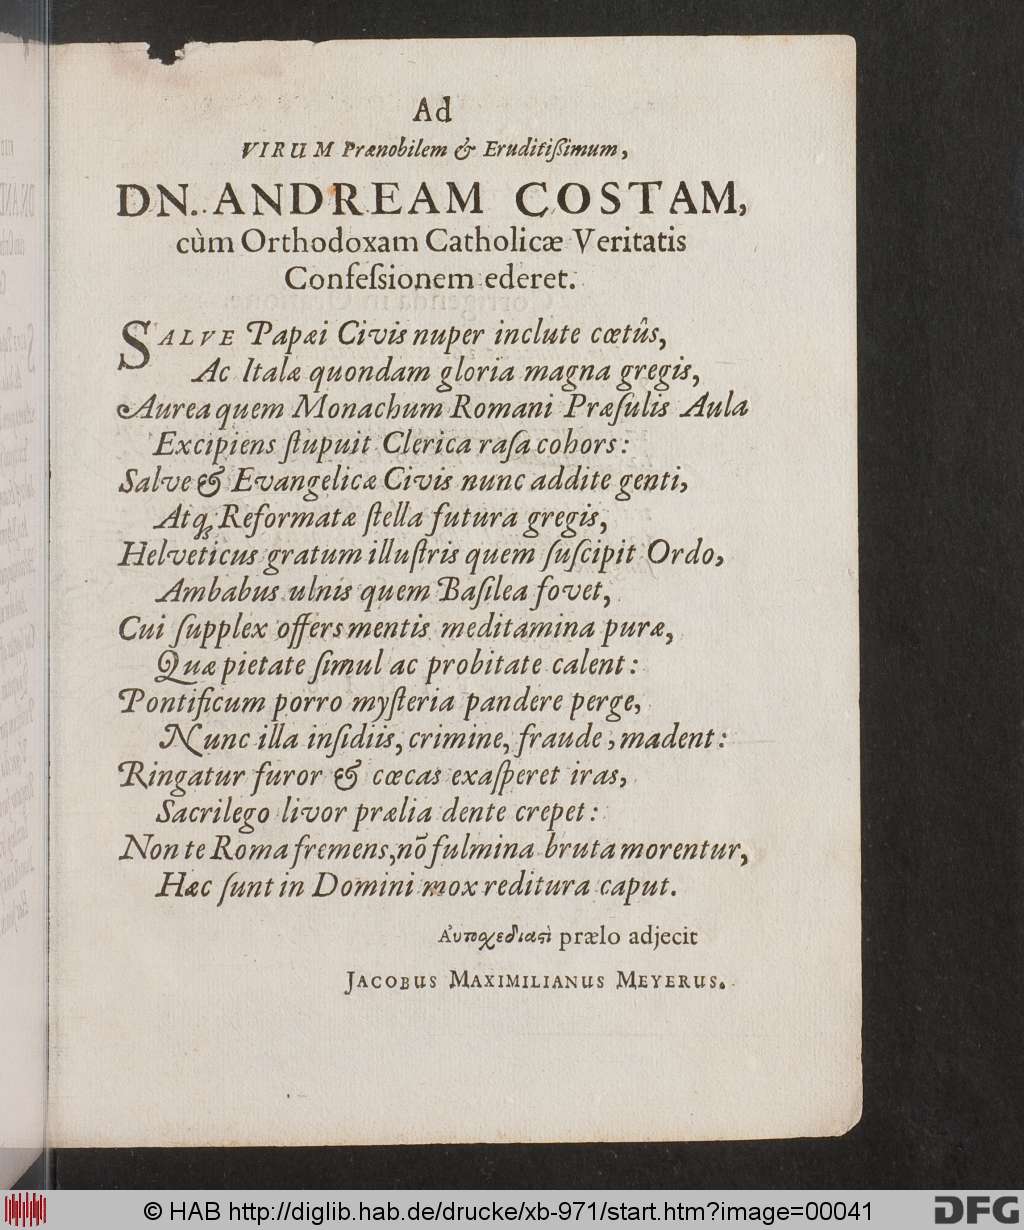 Ad
VIRUM Prænobilem & Eruditißimum,
DN. ANDREAM COSTAM,
cùm Orthodoxam Catholicæ Veritatis
Confeſsionem ederet.
SALVE Papæi Civis nuper inclute cœtûs,
Ac Italæ quondam gloria magna gregis,
Aurea quem Monachum Romani Præſulis Aula
Excipiens ſtupuit Clerica raſa cohors:
Salve & Evangelicæ Civis nunc addite genti,
Atq; Reformatæ ſtella futura gregis,
Helveticus gratum illuſtris quem ſuſcipit Ordo,
Ambabus ulnis quem Baſilea fovet,
Cui ſupplex offers mentis meditamina puræ,
Quæ pietate ſimul ac probitate calent:
Pontificum porro myſteria pandere perge,
Nunc illa inſidiis, crimine, fraude, madent:
Ringatur furor & cœcas exaſperet iras,
Sacrilego livor prælia dente crepet:
Non te Roma fremens, nõ fulmina bruta morentur,
Hæc ſunt in Domini mox reditura caput.
Αὐτοχεδιαςὶ prælo adjecit
JACOBUS MAXIMILIANUS MEYERUS.
© HAB http://diglib.hab.de/drucke/xb-971/start.htm?image=00041
DFG